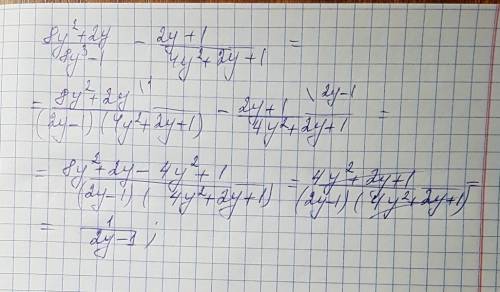 (8y²+2y)/(8y³-1) - (2y+1)/(4y²+2y+1) =
= (8y²+2y \1)/((2y-1)(4y²+2y+1)) - (2y+1 \2y-1)/(4y²+2y+1) =
= (8y²+2y-4y²+1)/((2y-1)(4y²+2y+1)) = (4y²+2y+1)/((2y-1)(4y²+2y+1)) =
= 1/(2y-1);